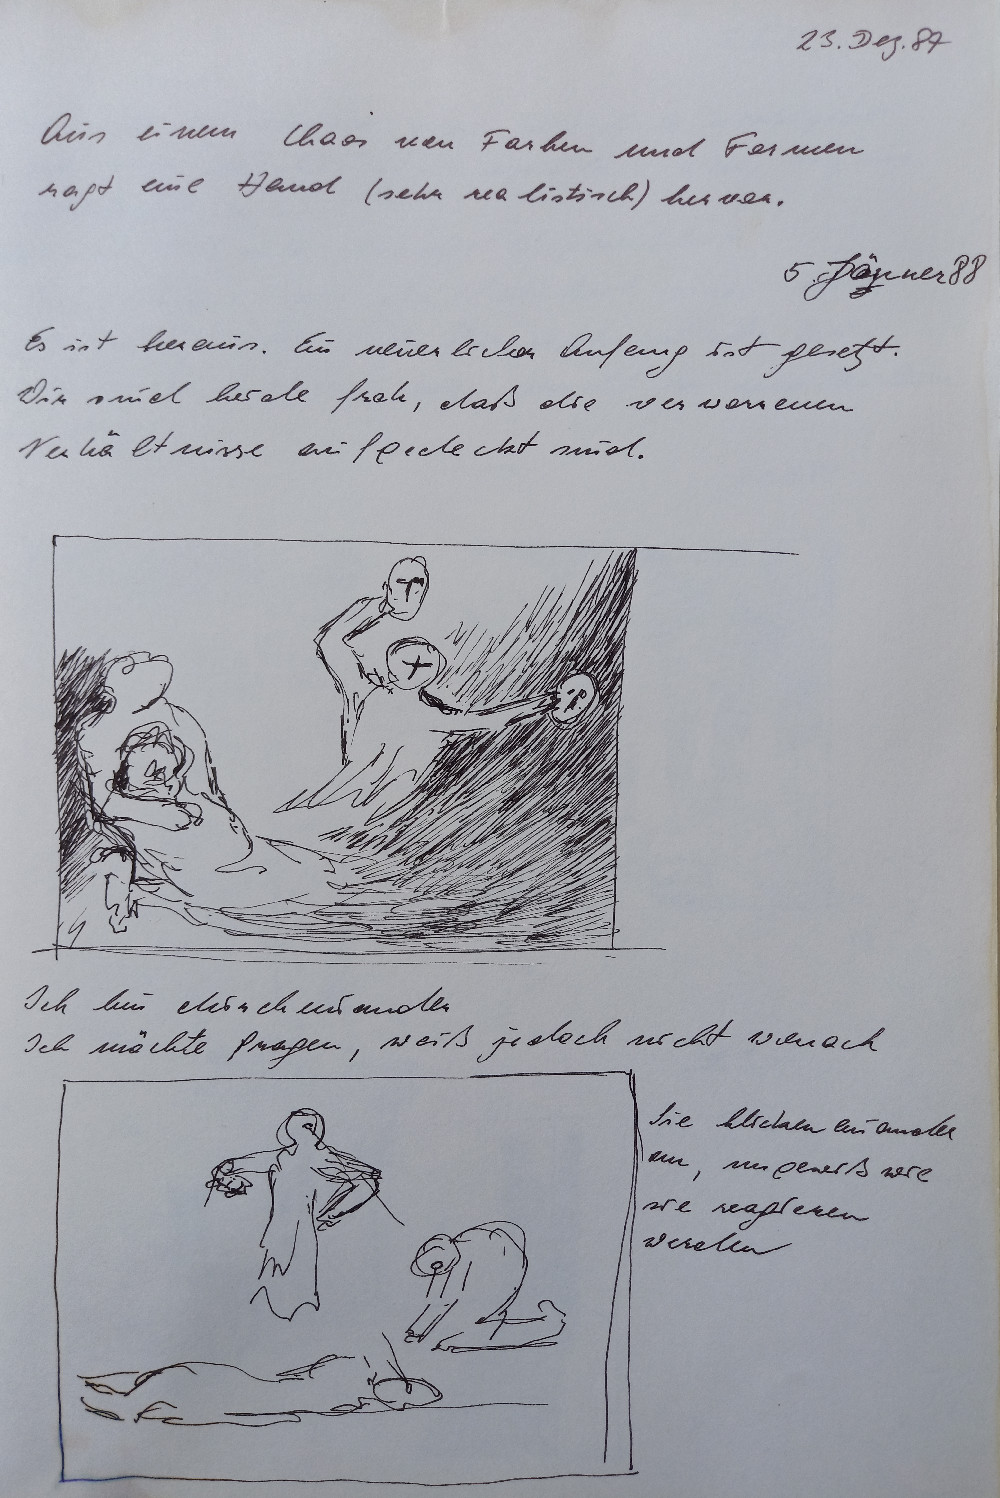 23. Dez. 87
Aus einem Chaos von Farben und Formen
ragt eine Hand (sehr realistisch) hervor.
5. Jänner 88
Es ist heraus. Ein neuerlicher Anfang ist gesetzt.
Wir sind beide froh, daß die verworrenen
Verhältnisse aufgedeckt sind.
Ich bin durcheinander
Ich möchte fragen, weiß jedoch nicht wonach
Sie blicken einander
an, ungewiß wie
sie reagieren
werden